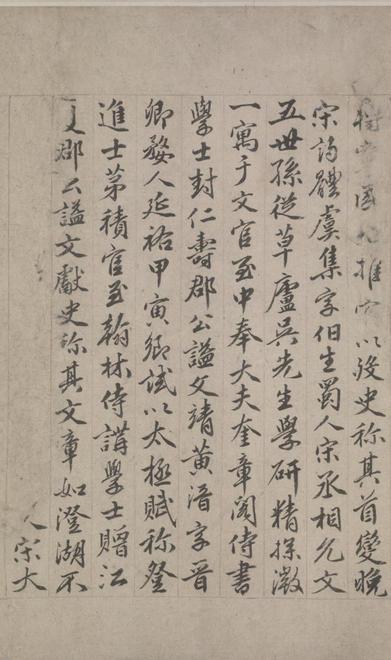 國公推以歿史称其首變晚
宋詩體虞集字伯生蜀人宋丞相允文
五世孫從草廬吳先生學研精探微
一寓于文官至中奉大夫奎章閣侍書
學士封仁壽郡公謚文靖黃溍字晉
卿婺人延祐甲寅鄉試以太極賦称登
進士苐積官至翰林侍講學士贈江
夏郡公謚文獻史称其文章如澄湖不
人宋大